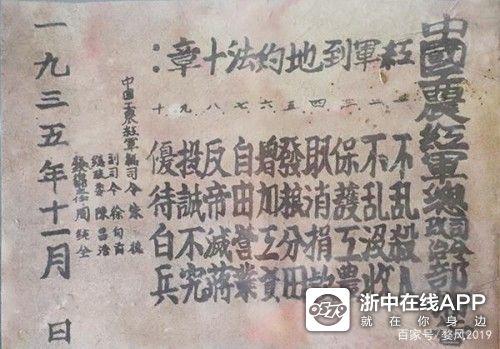 中國工農紅軍總司令部
紅軍到地約法十章：
一 不乱殺人
二 不乱没收
三 保護工農
四 取消捐款
五 發粮分田
六 增加工資
七 自由營業
八 反帝滅蔣
九 投誠不究
十 優待白兵
中國工農紅軍總司令 朱德
副司令 徐向前
總政委 陳昌浩
主任 周純全
一九三五年十一月 日
浙中在线APP
就在你身边
百家号/婺风2019